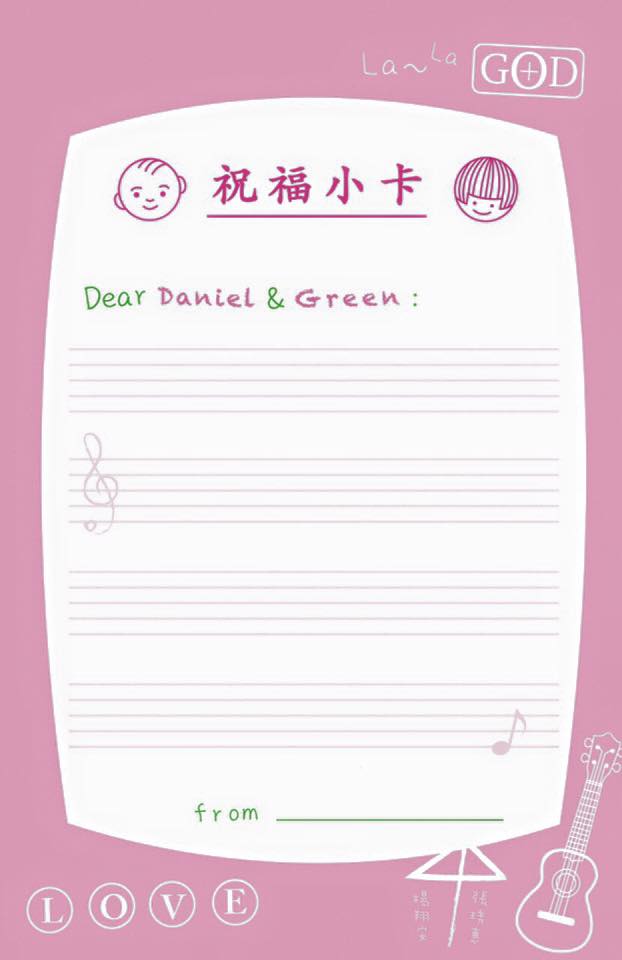 La~La
GOD
祝福小卡
Dear Daniel & Green :
from
LOVE
楊翔安
張琇惠